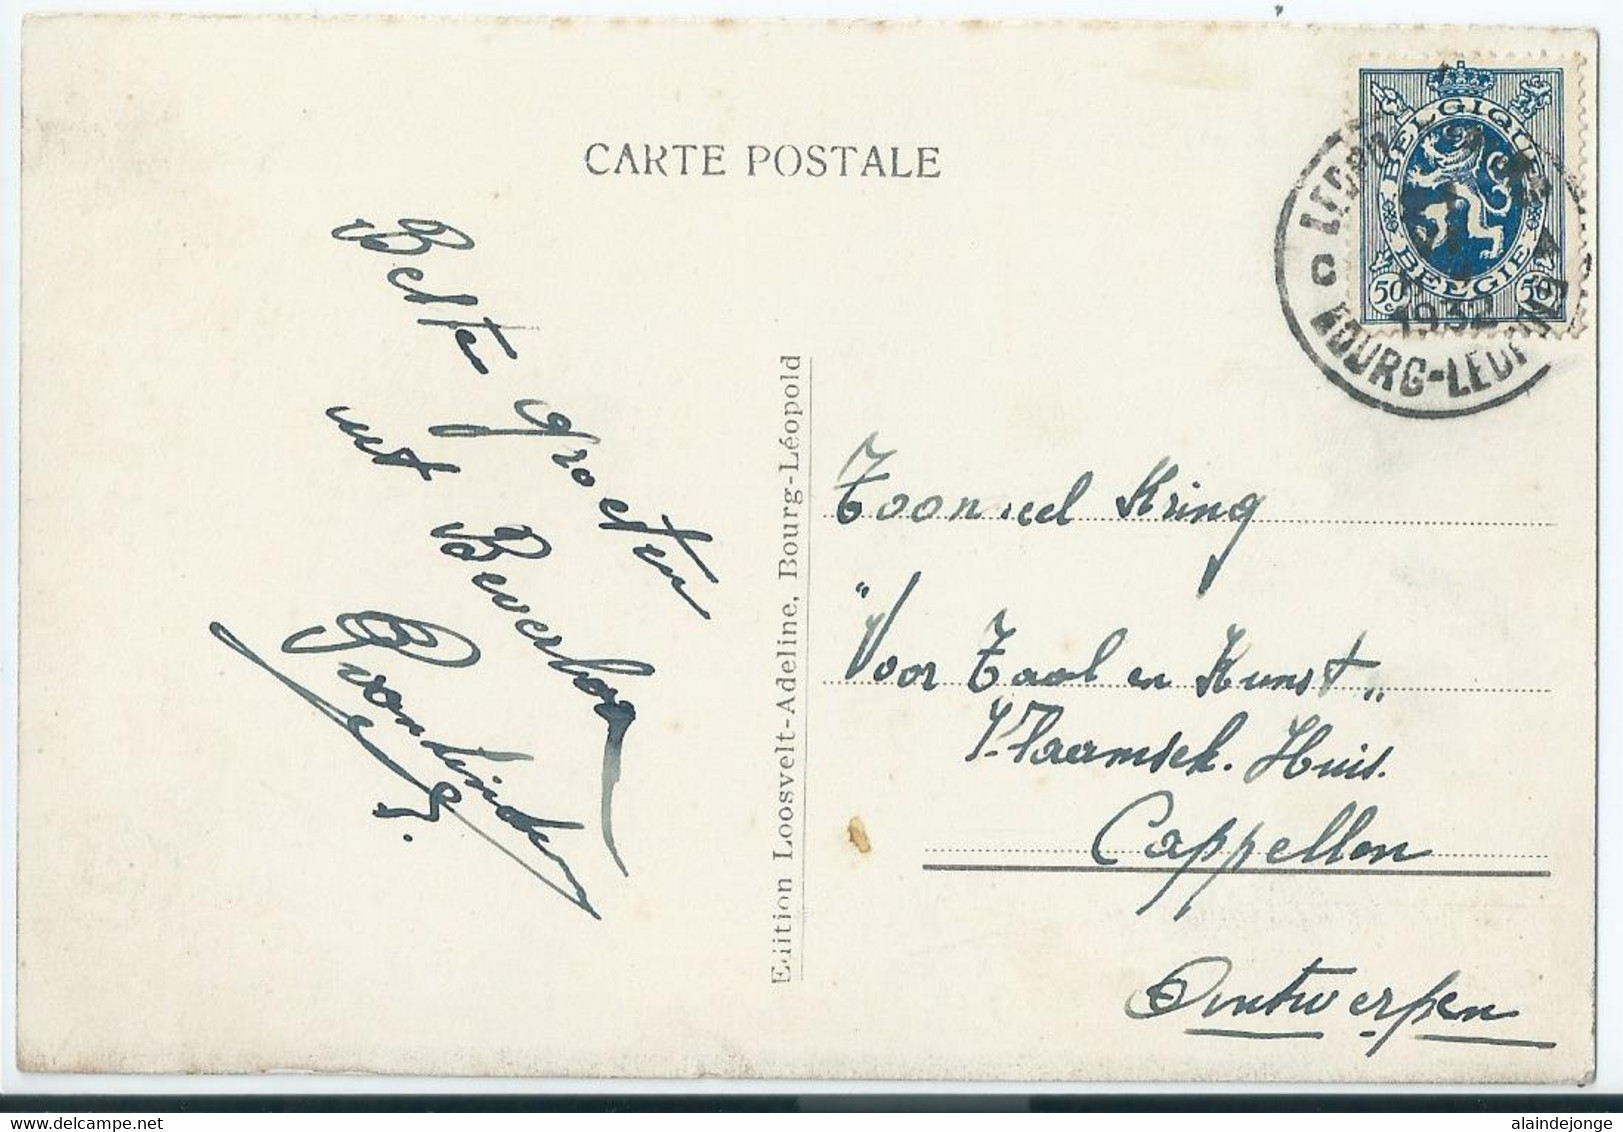 CARTE POSTALE
Beste groeten
uit Beverloo
Edition Loosvelt-Adeline, Bourg-Léopold
BELGIQUE
BELGIE
50 c 50 c
1932
BOURG-LEOPOLD
Tooneel Kring
"Voor Taal en Kunst„
Vlaamsch. Huis.
Cappellen
Antwerpen
alaindejonge